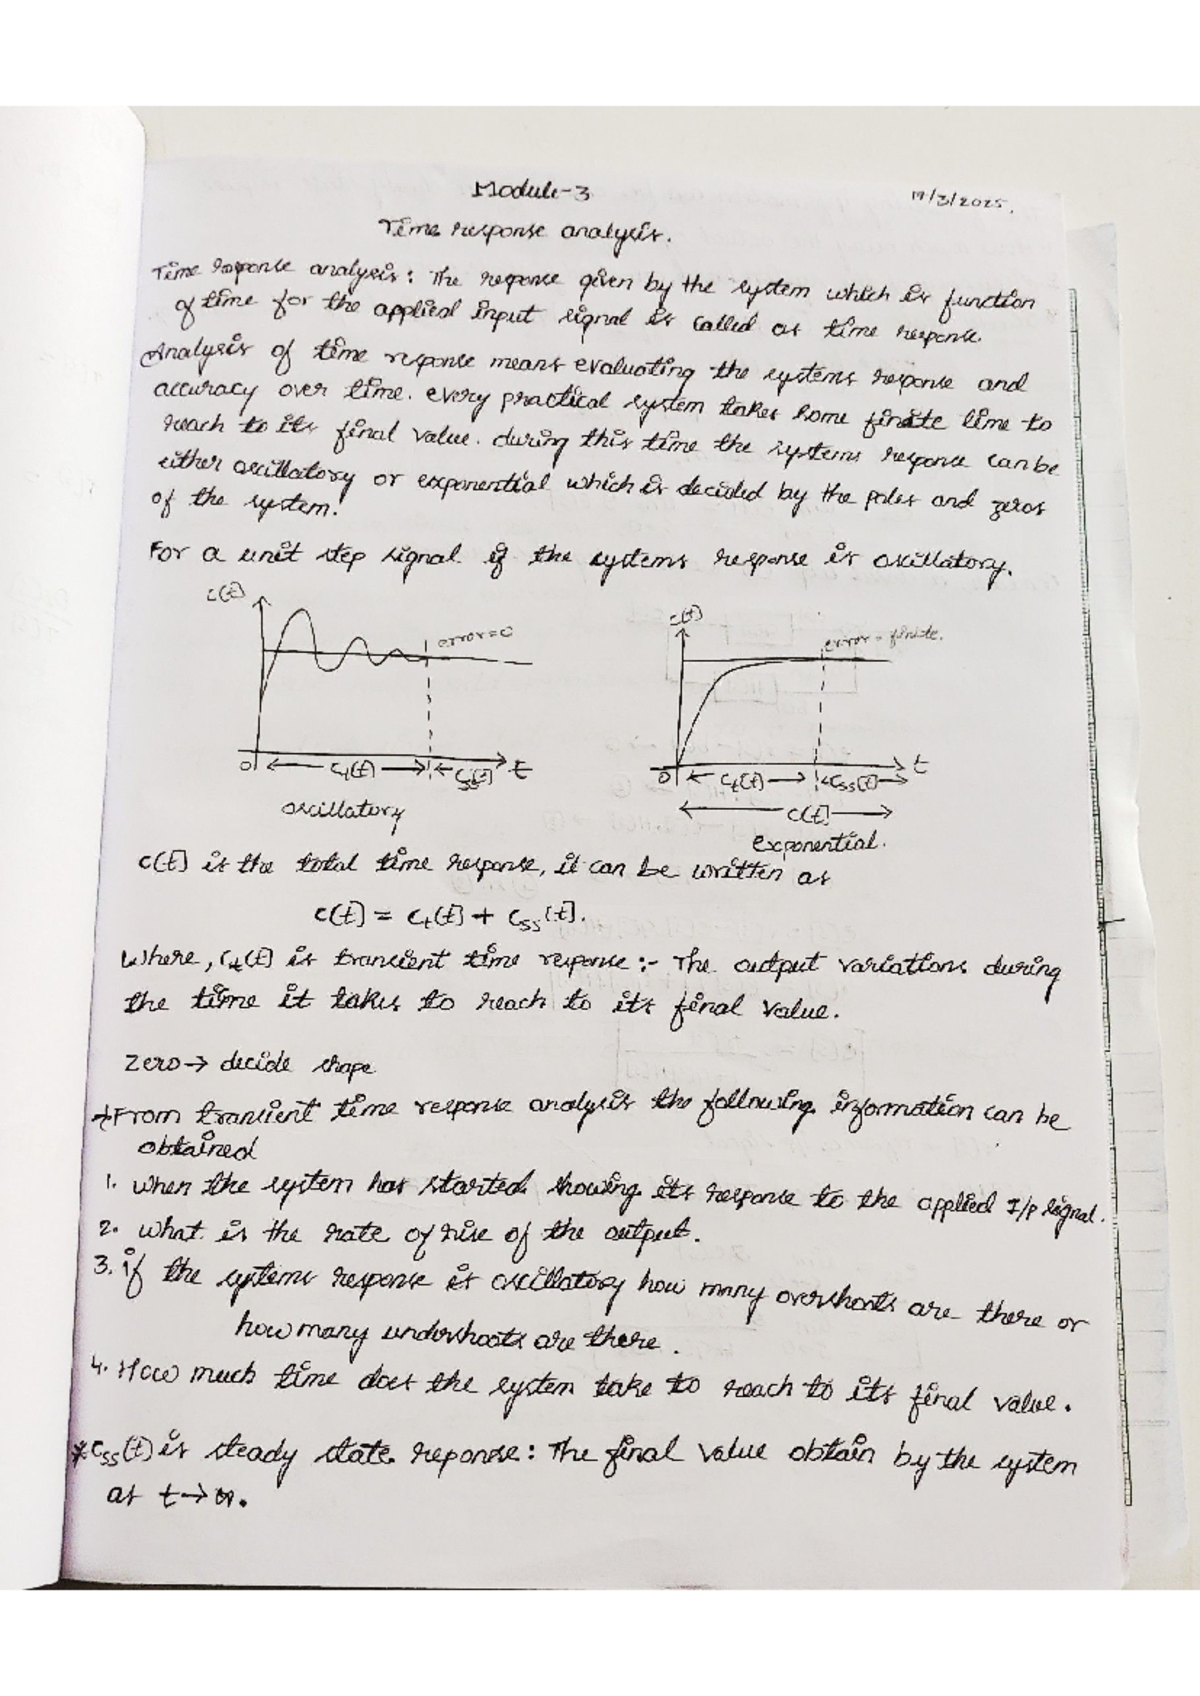 Module-3
19/3/2025.
Time response analysis.
Time response analysis: The response given by the system which is function
of time for the applied input signal is called as time response.
Analysis of time response means evaluating the systems response and
accuracy over time. every practical system takes some finite time to
reach to its final value. during this time the systems response can be
either oscillatory or exponential which is decided by the poles and zeros
of the system.
For a unit step signal if the systems response is oscillatory.
c(t)
error=0
0
Ct(t)
Css(t)
t
oscillatory
c(t)
error = finite.
0
Ct(t)
Css(t)
t
c(t)
exponential.
c(t) is the total time response, it can be written as
c(t) = Ct(t) + Css(t).
Where, Ct(t) is transient time response :- The output variations during
the time it takes to reach to its final value.
Zero → decide shape
→From transient time response analysis the following information can be
obtained
1. when the system has started showing its response to the applied I/p signal.
2. what is the rate of rise of the output.
3. if the systems response is oscillatory how many overshoots are there or
how many undershoots are there.
4. How much time does the system take to reach to its final value.
*Css(t) is steady state reponse: The final value obtain by the system
at t→∞.